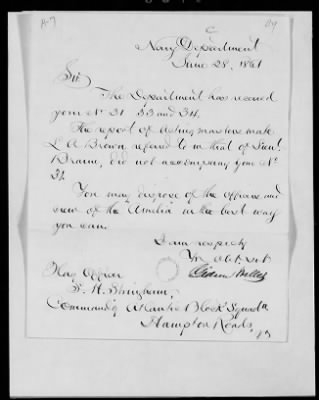 A-9
C
Navy Department
June 28, 1861
Sir
The Department has received
your Nos 31 33 and 34.
The report of acting masters mate
L A Brown referred to in that of Lieut
Braine, did not accompany your No
34.
You may dispose of the officers and
crew of the Amelia in the best way
you can.
I am respecty
Yr obt svt
Gideon Welles
Flag Officer
S. H. Stringham,
Commandg Atlantic Block Squadn
Hampton Roads,